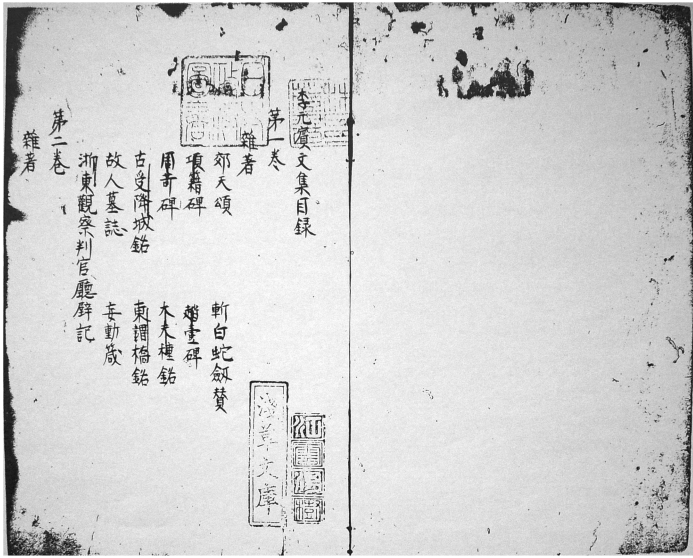 李元賓文集目録
第一巻
雜著
郊天頌
斬白蛇劔賛
項籍碑
趙壹碑
周苛碑
大夫種銘
古受降城銘
東渭橋銘
故人墓誌
妄動箴
浙東觀察判官廳壁記
第二巻
雜著
淺草文庫